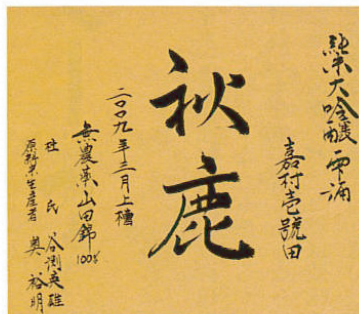 純米大吟醸 雫酒
嘉村壱號田
秋鹿
二〇〇九年三月上槽
無農薬山田錦100%
杜氏 谷渕英雄
原料米生産者 奥裕明